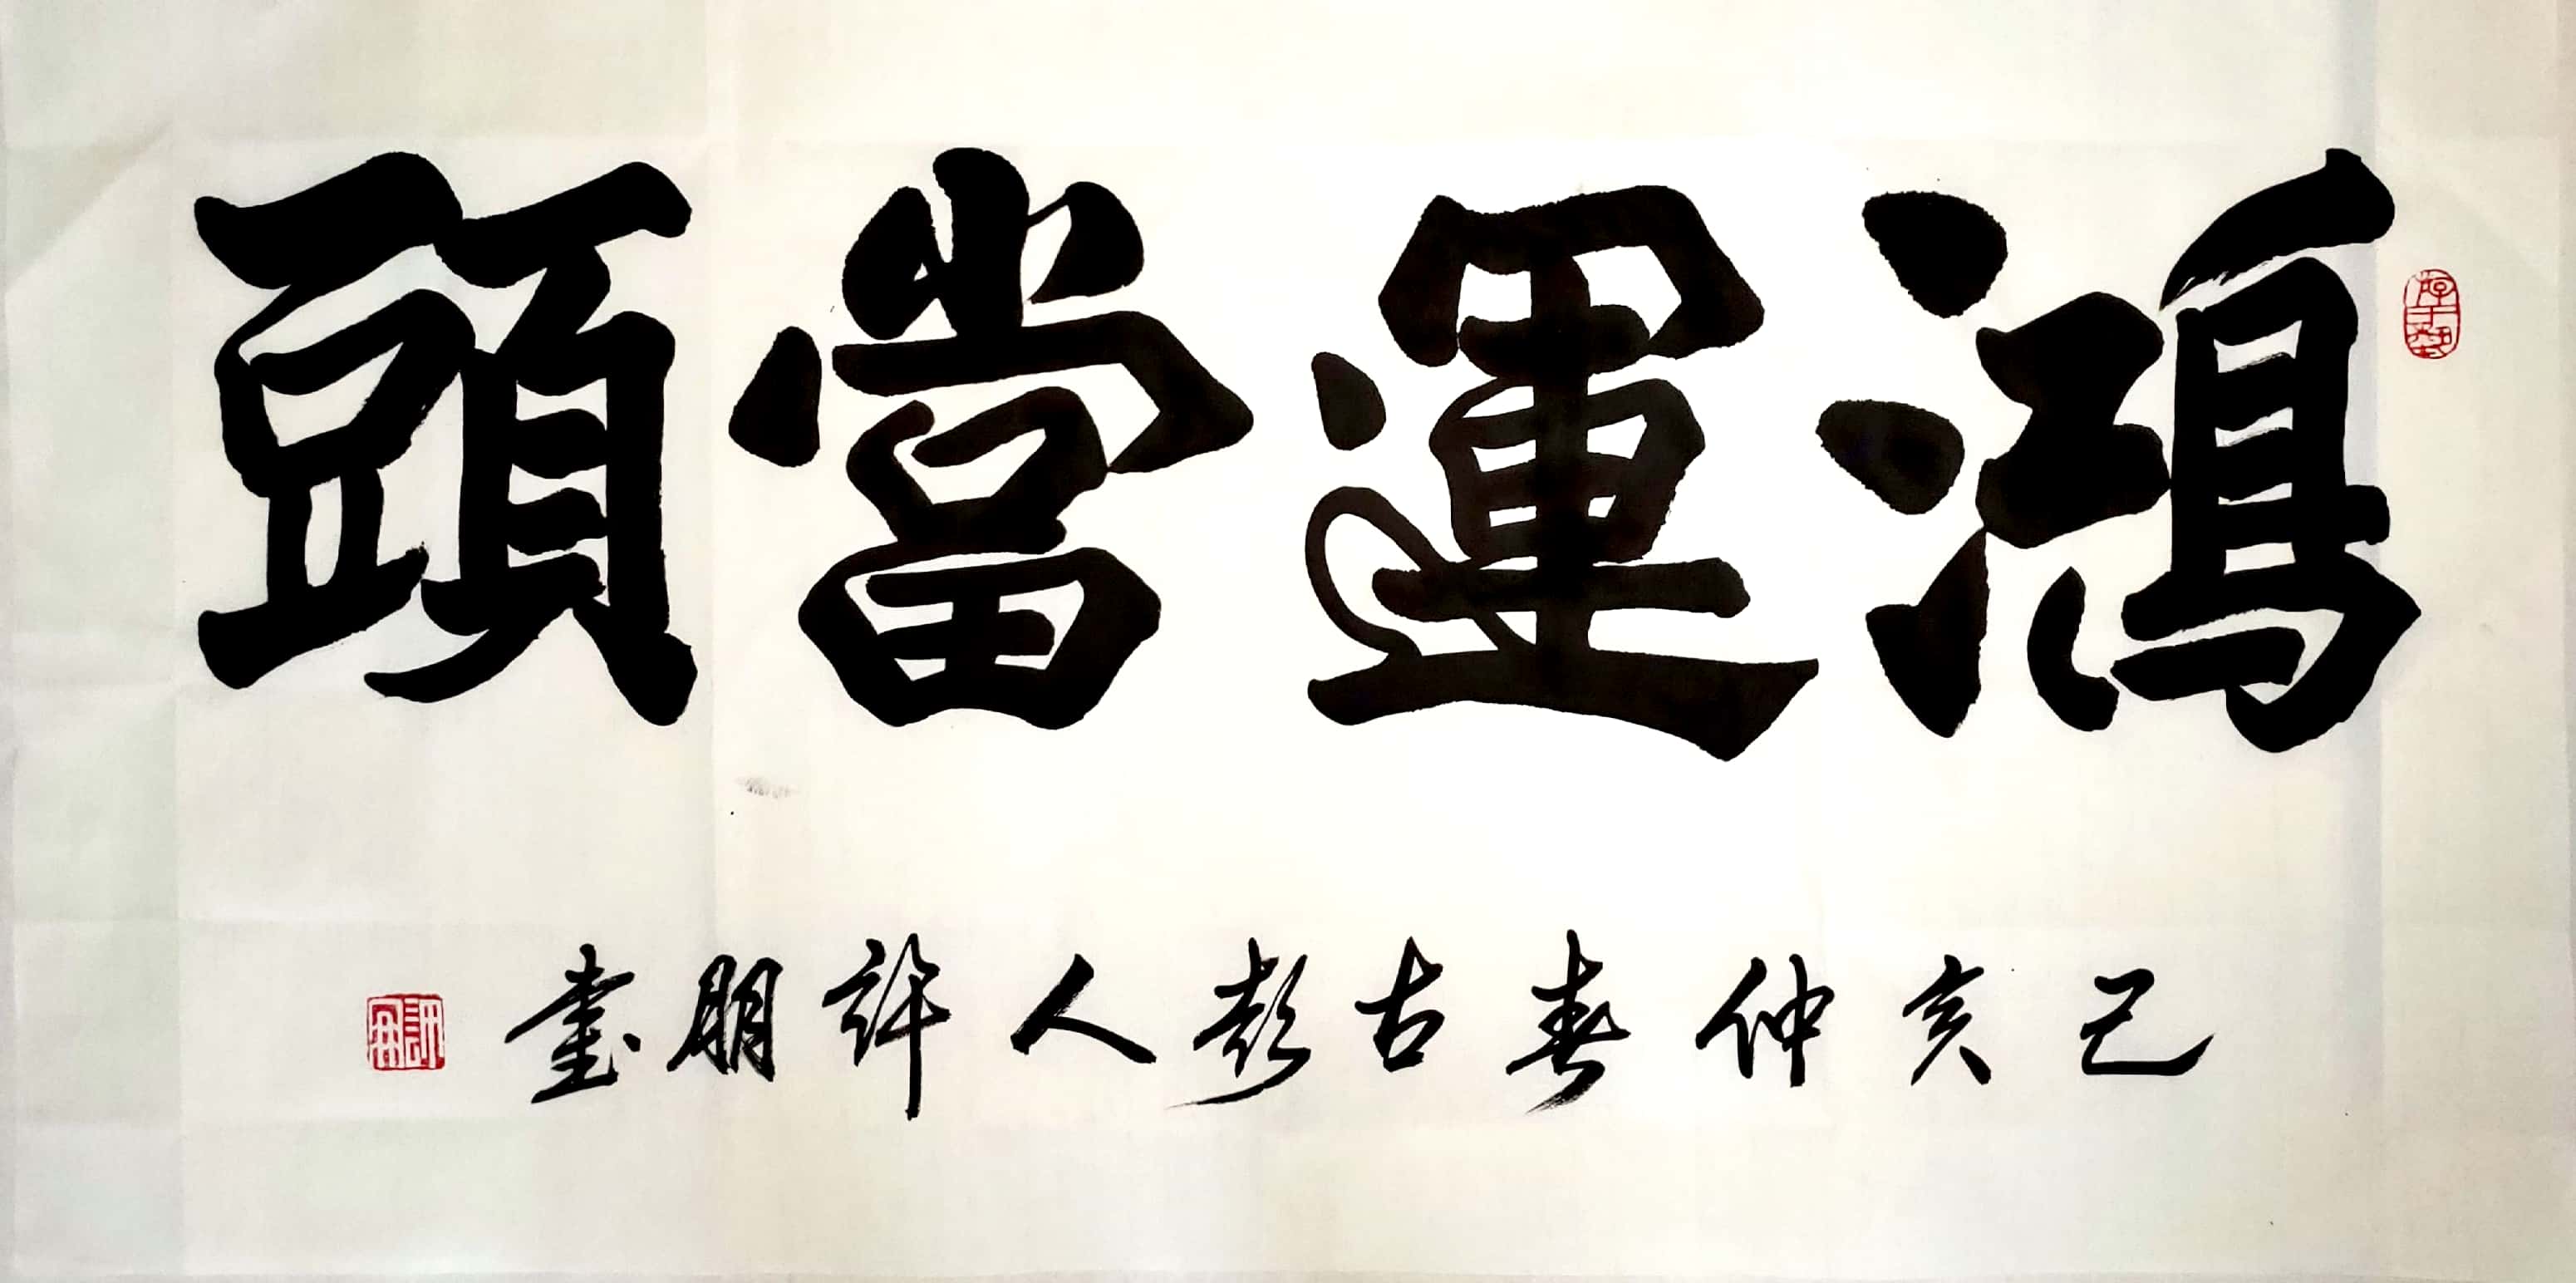 鴻運當頭
己亥仲春古彭人許朋書